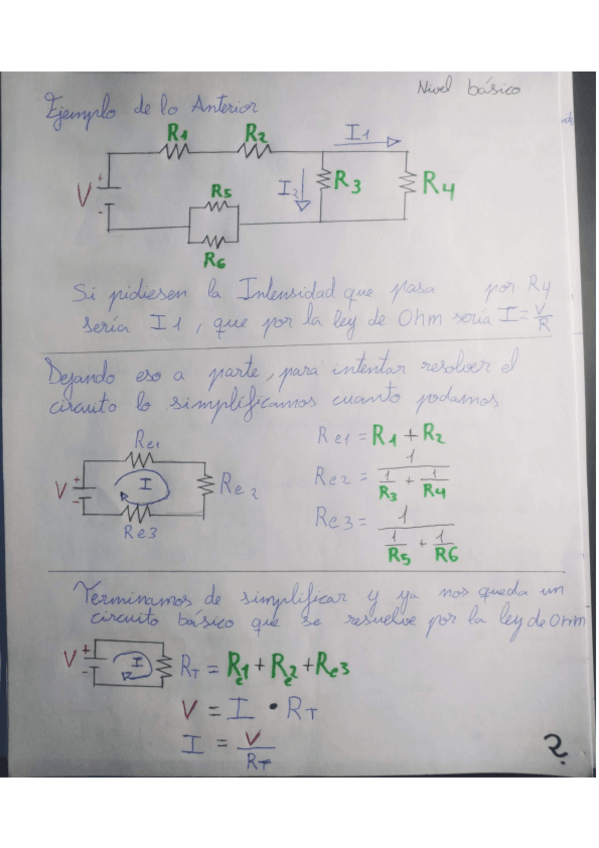 Nivel básico
Ejemplo de lo Anterior
R1 R2 I1
V + - I2 R3 R4
R5
R6
Si pidiesen la Intensidad que pasa por R4
sería I1, que por la ley de Ohm sería I = V/R
Dejando eso a parte, para intentar resolver el
circuito lo simplificamos cuanto podamos
Re1
V + - I Re2
Re3
Re1 = R1 + R2
Re2 = 1/(1/R3 + 1/R4)
Re3 = 1/(1/R5 + 1/R6)
Terminamos de simplificar y ya nos queda un
circuito básico que se resuelve por la ley de Ohm
V + - I RT = Re1 + Re2 + Re3
V = I • RT
I = V/RT
2